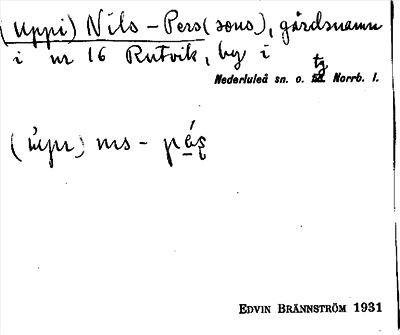 (Uppi) Nils-Pers(sons), gårdsnamn
i nr 16 Rutvik, by i
Nederluleå sn. o. tg Norrb. l.
ms - pás
EDVIN BRÄNNSTRÖM 1931